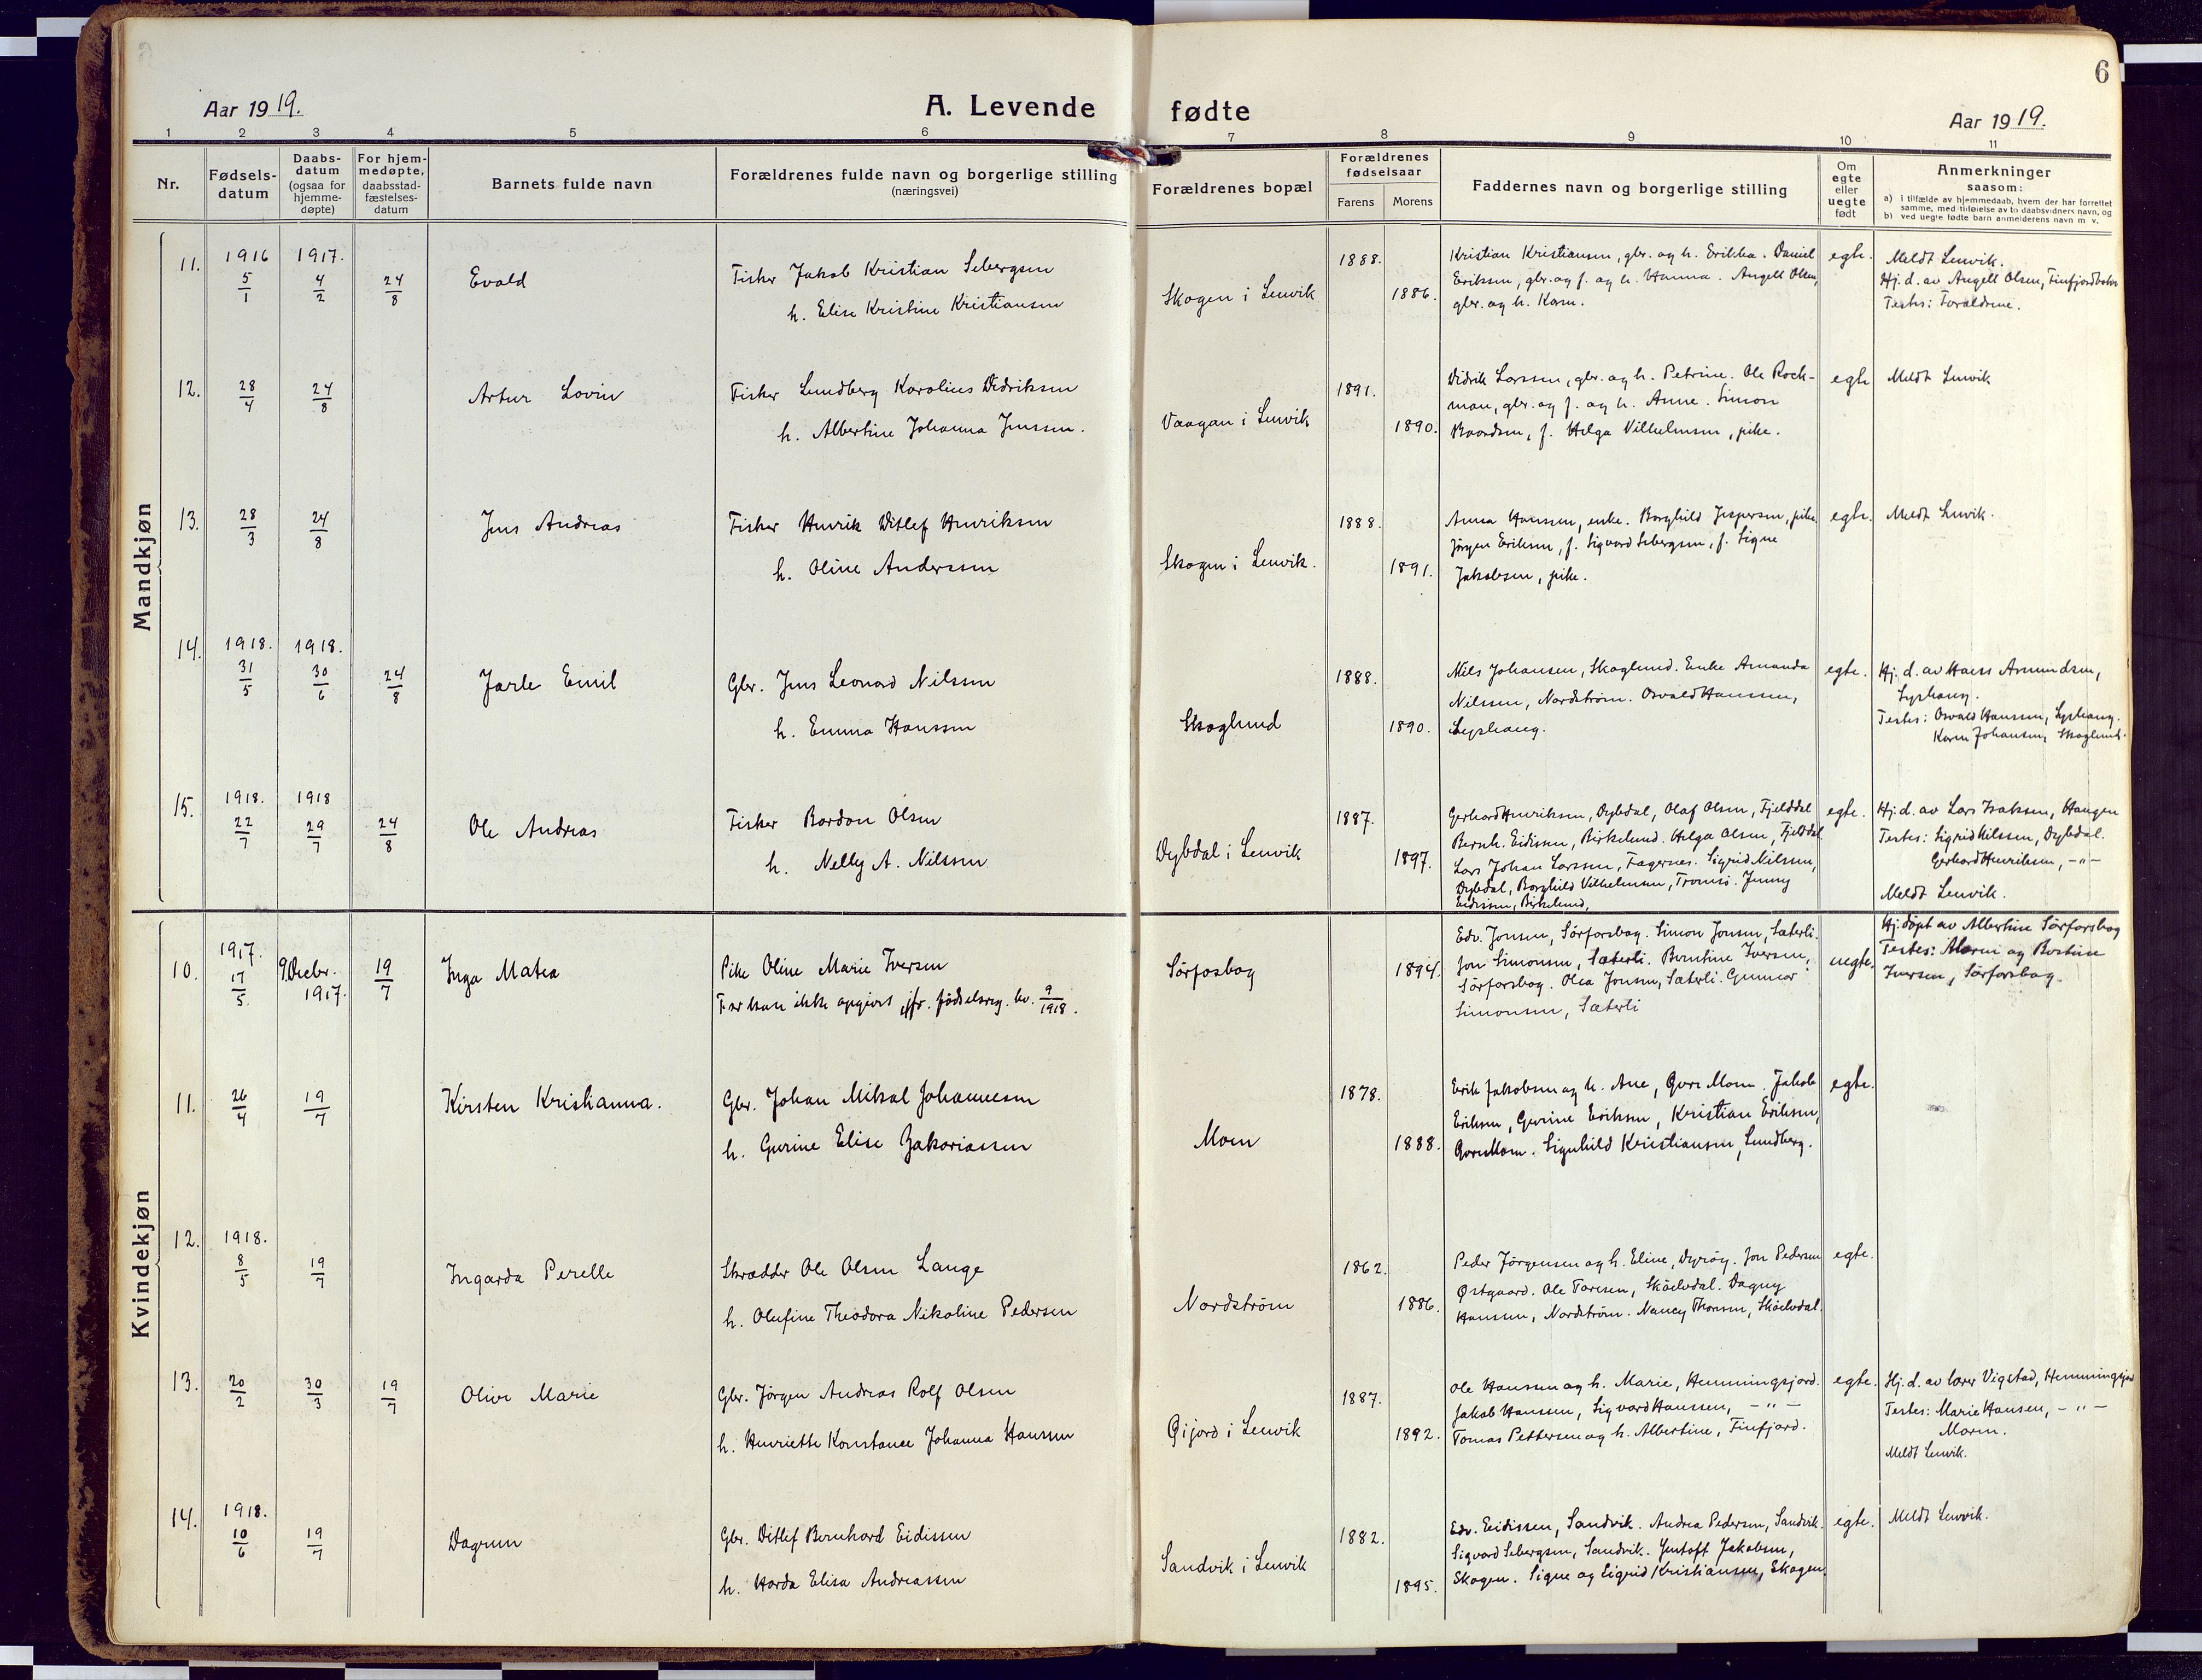 6
Aar 1919.
A. Levende fødte
Aar 1919.
1 2 3 4 5 6 7 8 9 10 11
Nr.
Fødselsdatum
Daabsdatum
(ogsaa for hjemmedøpte)
For hjemmedøpte,
daabsstadfæstelsesdatum
Barnets fulde navn
Forældrenes fulde navn og borgerlige stilling
(næringsvei)
Forældrenes bopæl
Forældrenes fødselsaar
Farens Morens
Faddernes navn og borgerlige stilling
Om egte eller uegte født
Anmerkninger
saasom:
a) i tilfælde av hjemmedaab, hvem der har forrettet samme, med tilføielse av to daabsvidners navn, og
b) ved uegte fødte barn anmelderens navn m. v.
Mandkjøn
11. 1916 5/1 1917. 4/2 24/8 Evald
Fisker Jakob Kristian Sebergsen
h. Elise Kristine Kristiansen
Skogen i Lenvik 1888. 1886.
Kristian Kristiansen, gbr. og h. Erikka. Daniel
Eriksen, gbr. og f. og h. Hanna. Angell Olsen,
gbr. og h. Karn.
egte.
Meldt Lenvik.
Hj. d. av Angell Olsen, Finfjordbotn
Testes: Forældrene.
12. 28/4 24/8 Artur Lovin
Fisker Lundberg Karolius Didriksen
h. Albertine Johanna Jenssen.
Vaagan i Lenvik 1891. 1890.
Didrik Larssen, gbr. og h. Petrine. Ole Rock-
man, gbr. og f. og h. Anne. Simon
Baardsen, f. Helga Vilhelmsen, pike.
egte
Meldt Lenvik
13. 28/3 24/8 Jens Andreas
Fisker Henrik Ditlef Henriksen
h. Oline Anderssen
Skogen i Lenvik. 1888. 1891.
Anna Hanssen, enke. Borghild Jespersen, pike.
Jørgen Eriksen, f. Sigvard Sebergsen, f. Signe
Jakobsen, pike.
egte.
Meldt Lenvik.
14. 1918. 31/5 1918. 30/6 24/8 Jarle Emil
Gbr. Jens Leonard Nilssen
h. Emma Hanssen
Skoglund 1888. 1890.
Nils Johansen, Skoglund. Enke Amanda
Nilssen, Nordstrøm. Osvald Hanssen,
Lyshaug.
egte.
Hj. d. av Hans Amundsen,
Lyshaug.
Testes: Osvald Hanssen, Lyshaug.
Karen Johansen, Skoglund.
15. 1918. 22/7 1918 29/7 24/8 Ole Andreas
Fisker Bardon Olsen
h. Nelly A. Nilssen
Dybdal i Lenvik 1887. 1897.
Gerhard Henriksen, Dybdal, Olaf Olsen, Fjelddal
Bernh. Eidissen, Birkelund. Helga Olsen, Fjelddal
Lars Johan Larssen, Fagernes. Sigrid Nilssen,
Dybdal, Borghild Vilhelmsen, Tromsø. Jenny
Eidissen, Birkelund.
egte.
Hj. d. av Lars Isaksen, Haugen
Testes: Sigrid Nilssen, Dybdal.
Gerhard Henriksen, -"-
Meldt Lenvik.
Kvindekjøn
10. 1917. 17/5. 9. Decbr. 1917. 19/7 Inga Matea
Pike Oline Marie Iversen
Far kan ikke opgives, jfr. fødselsreg. nr. 9/1918.
Sørfosbog 1894.
Edv. Jonsen, Sørforsbog. Simon Jonsen, Sæterli.
Jon Simonsen, Sæterli. Berntine Iversen,
Sørforsbog. Olea Jonsen, Sæterli. Gunnar
Simonsen, Sæterli
uegte.
Hj. døpt av Albertine Sørforsbog
Testes: Marie og Bostine
Iversen, Sørforsbog.
11. 26/4 19/7 Kirsten Kristianna.
Gbr. Johan Mikal Johannesen
h. Gurine Elise Zakariassen
Moen 1878. 1888.
Erik Jakobsen og h. Ane, Øvre Moen. Jakob
Eriksen, Gurine Eriksen, Kristian Eriksen,
Øvre Moen. Signhild Kristiansen, Lundberg.
egte.
12. 1918. 8/5 19/7 Ingarda Perelle
Skrædder Ole Olsen Lange
h. Olufine Theodora Nikoline Pedersen
Nordstrøm 1862. 1886.
Peder Jørgensen og h. Eline, Dyrøy. Jon Pedersen
Østgaard. Ole Toresen, Skøelvdal. Dagny
Hanssen, Nordstrøm. Nancy Thoresen, Skøelvdal.
egte.
13. 20/2 30/3 19/7 Olive Marie
Gbr. Jørgen Andreas Rolf Olsen
h. Henriette Konstance Johanna Hanssen
Gijord i Lenvik 1887. 1892.
Ole Hanssen og h. Marie, Hemmingsjord.
Jakob Hanssen, Sigvard Hanssen, -"-
Tomas Pettersen og h. Albertine, Finfjord.
egte.
Hj. d. av lærer Vigstad, Hemmingsjord
Testes: Marie Hansen, -"-
Moren.
Meldt Lenvik.
14. 1918. 10/6 19/7 Dagrun
Gbr. Ditlef Bernhard Eidissen
h. Harda Elisa Andreassen
Sandvik i Lenvik 1882. 1895.
Edv. Eidissen, Sandvik. Andrea Pedersen, Sandvik.
Sigvard Sebergsen, Sandvik. Gentoft Jakobsen,
Skogen. Signe og Sigrid Kristiansen, Skogen.
egte.
Meldt Lenvik.